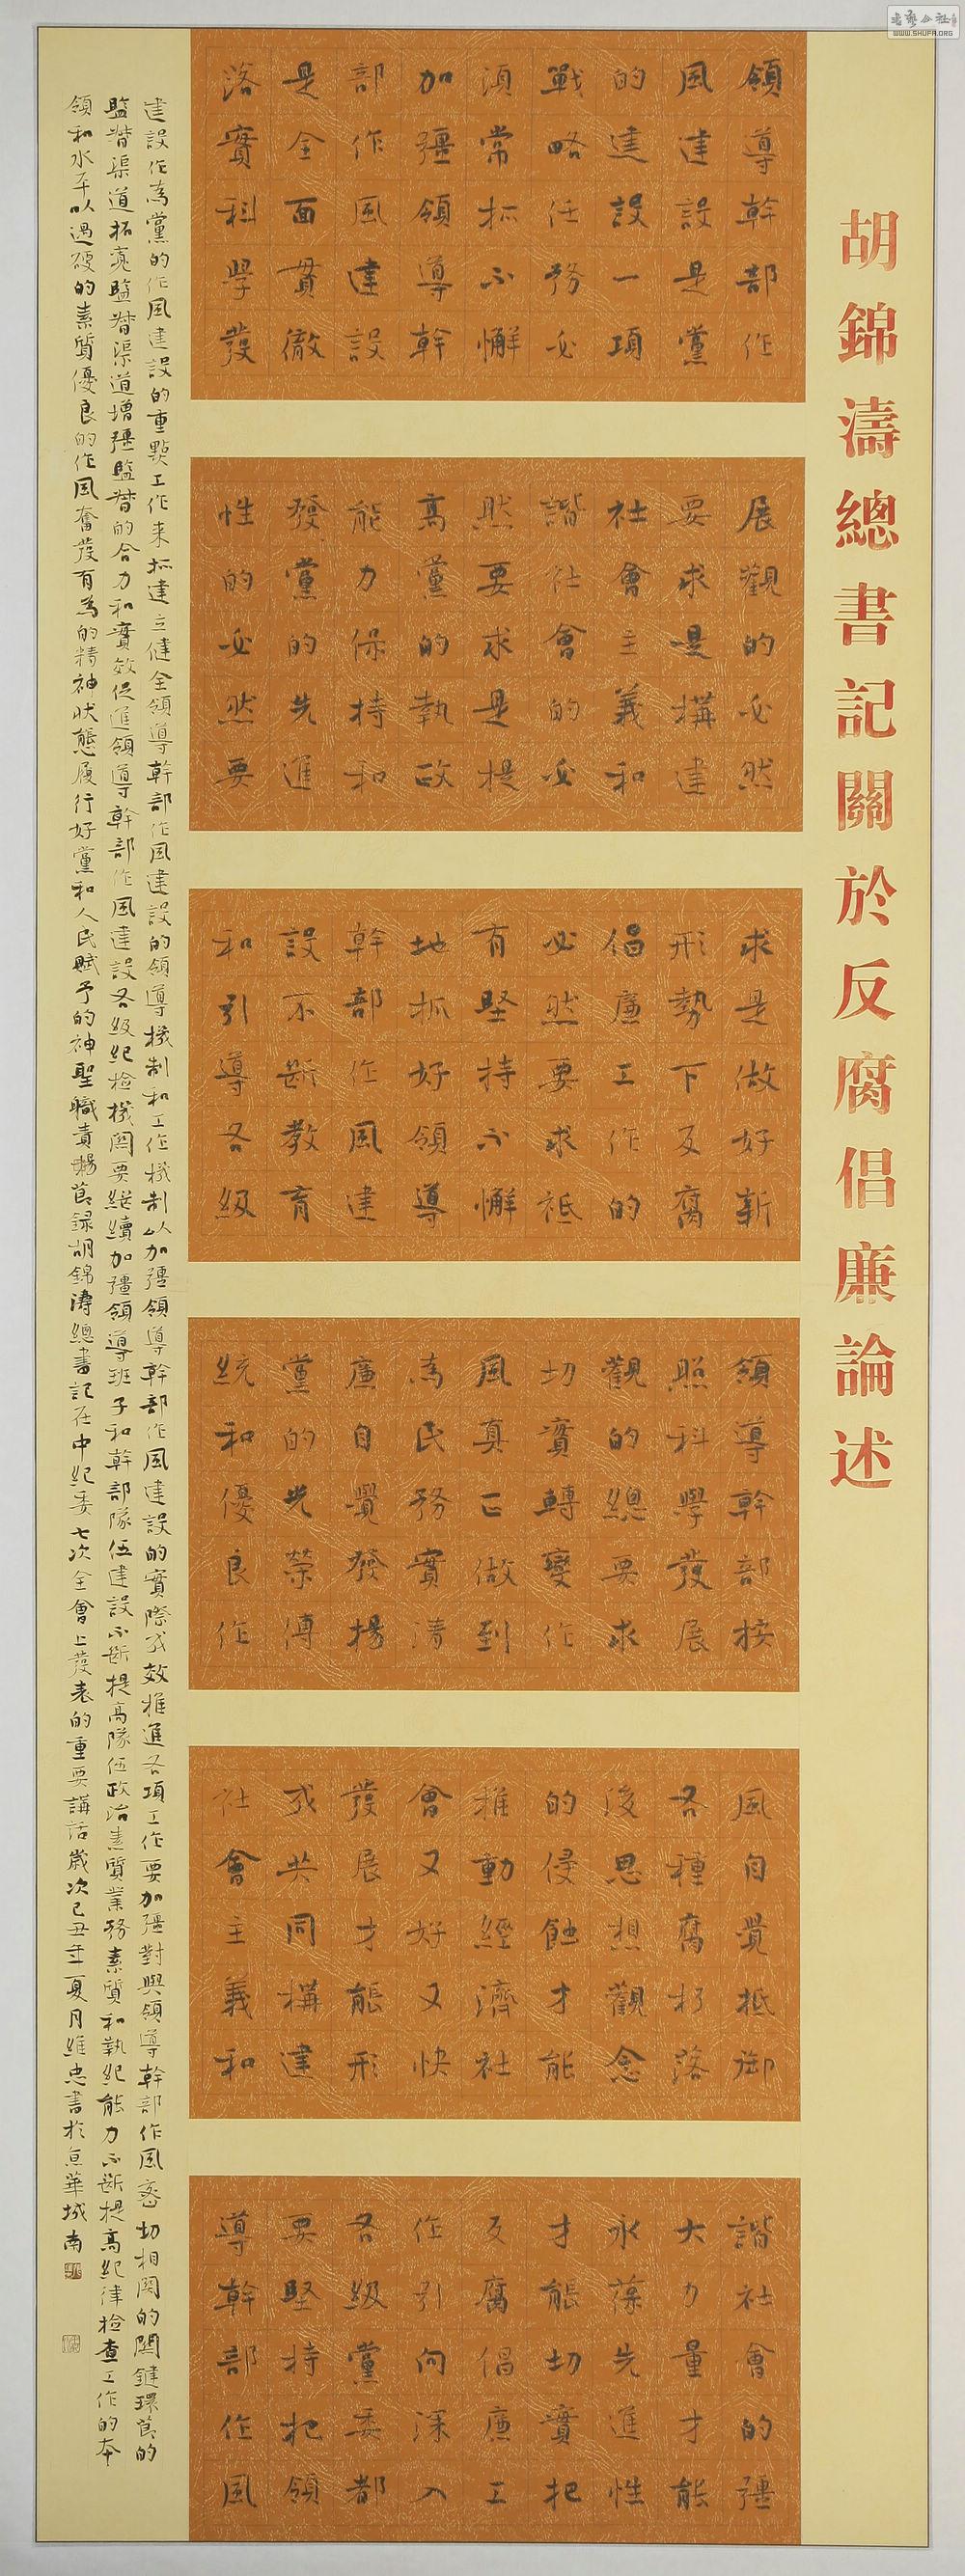 胡錦濤總書記關於反腐倡廉論述
領導幹部作
風建設是黨
的建設一項
戰略任務必
須常抓不懈
加強領導幹
部作風建設
是全面貫徹
落實科學發
展觀的必然
要求是構建
社會主義和
諧社會的必
然要求是提
高黨的執政
能力保持和
發黨的先進
性的必然要
求是做好新
形勢下反腐
倡廉工作的
必然要求祗
有堅持不懈
地抓好領導
幹部作風建
設不斷教育
和引導各級
領導幹部按
照科學發展
觀的總要求
切實轉變作
風真正做到
為民務實清
廉自覺發揚
黨的光榮傳
統和優良作
風自覺抵御
各種腐朽落
後思想觀念
的侵蝕才能
推動經濟社
會又好又快
發展才能形
成共同構建
社會主義和
諧社會的彊
大力量才能
永葆先進性
才能切實把
反腐倡廉工
作引向深入
各級黨委都
要堅持把領
導幹部作風
建設作為黨的作風建設的重點工作来抓建立健全領導幹部作風建設的領導機制和工作機制以加彊領導幹部作風建設的實際成效推進各項工作要加彊對與領導幹部作風密切相関的関鍵環節的
監督渠道拓寬監督渠道增彊監督的合力和實效促進領導幹部作風建設各級紀檢機関要継續加彊領導班子和幹部隊伍建設不斷提高隊伍政治素質業務素質和執紀能力不斷提高紀律檢查工作的本
領和水平以過硬的素質優良的作風奮發有為的精神狀態履行好黨和人民賦予的神聖職責節録胡錦濤總書記在中紀委七次全會上發表的重要講話歲次己丑年夏月維忠書於京華城南
WWW.SHUFA.ORG